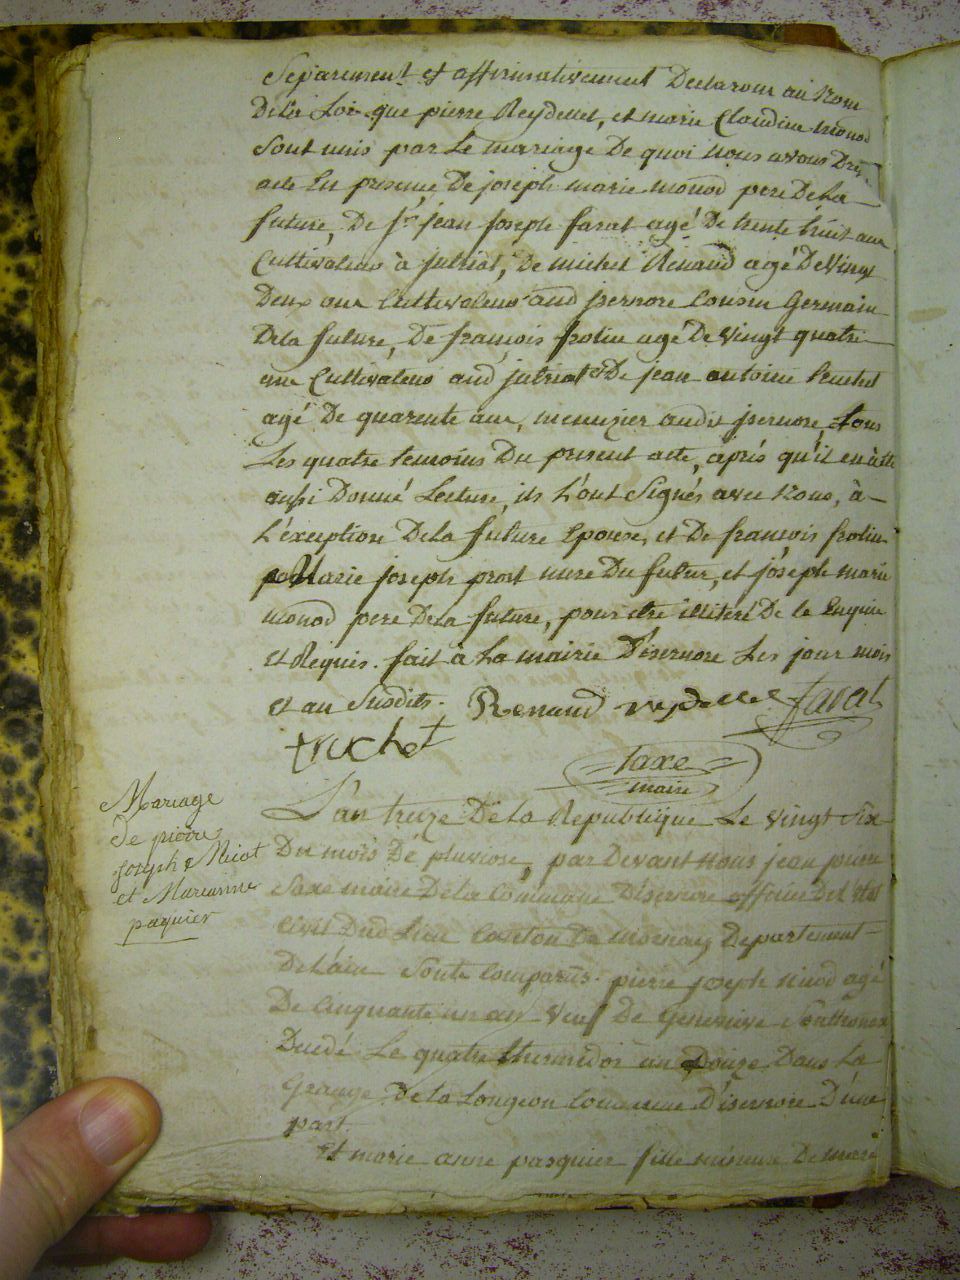 Séparement et affirmativement Declarons au Nom
De la Loi que pierre Reydellet, et marie Claudine monod
Sont unis par Le mariage De quoi Nous avons Dres
acte En presence De joseph marie monod pere De La
future, De Sr jean joseph favat agé De trente huit ans
Cultivateur à jutriat, De michel Renaud agé De Vingt
Deux ans Cultivateur aud jsernore Cousin Germain
De la future, De françois frolin agé De Vingt quatre
ans Cultivateur aud jutriat & De jean antoine truchet
agé De quarente ans, menuzier audit jsernore, tous
Les quatre temoins Du présent acte, aprés qu'il en à été
aussi Donné Lecture, ils L'ont Signés avec Nous, à
L'exception De la future Epouse, et De françois frolin
Marie joseph prost mere Du futur, et joseph marie
monod pere De la future, pour être illitéré De le Enquis
Et Requis. fait à La mairie D'isernore Les jour mois
et an Susdits. Renaud reydellet favat
truchet
taxe
maire
Mariage
de pierre
Joseph Nicot
et Marianne
paquier
L'an treize De la Republique Le Vingt Six
Du mois De pluviose, par Devant Nous jean pierre
taxe maire De la Commune D'isernore officier De l'état
Civil Dud Lieu Canton De mornay Departement
De L'ain Sonts Comparus. pierre joseph nicod agé
De Cinquante un an Veuf De Genevieve Sonthonax
Dècédé Le quatre thermidor an Douze Dans La
Grange De la Longeon Commune D'isernore D'une
part.
Et marie anne pasquier fille mineure De marie